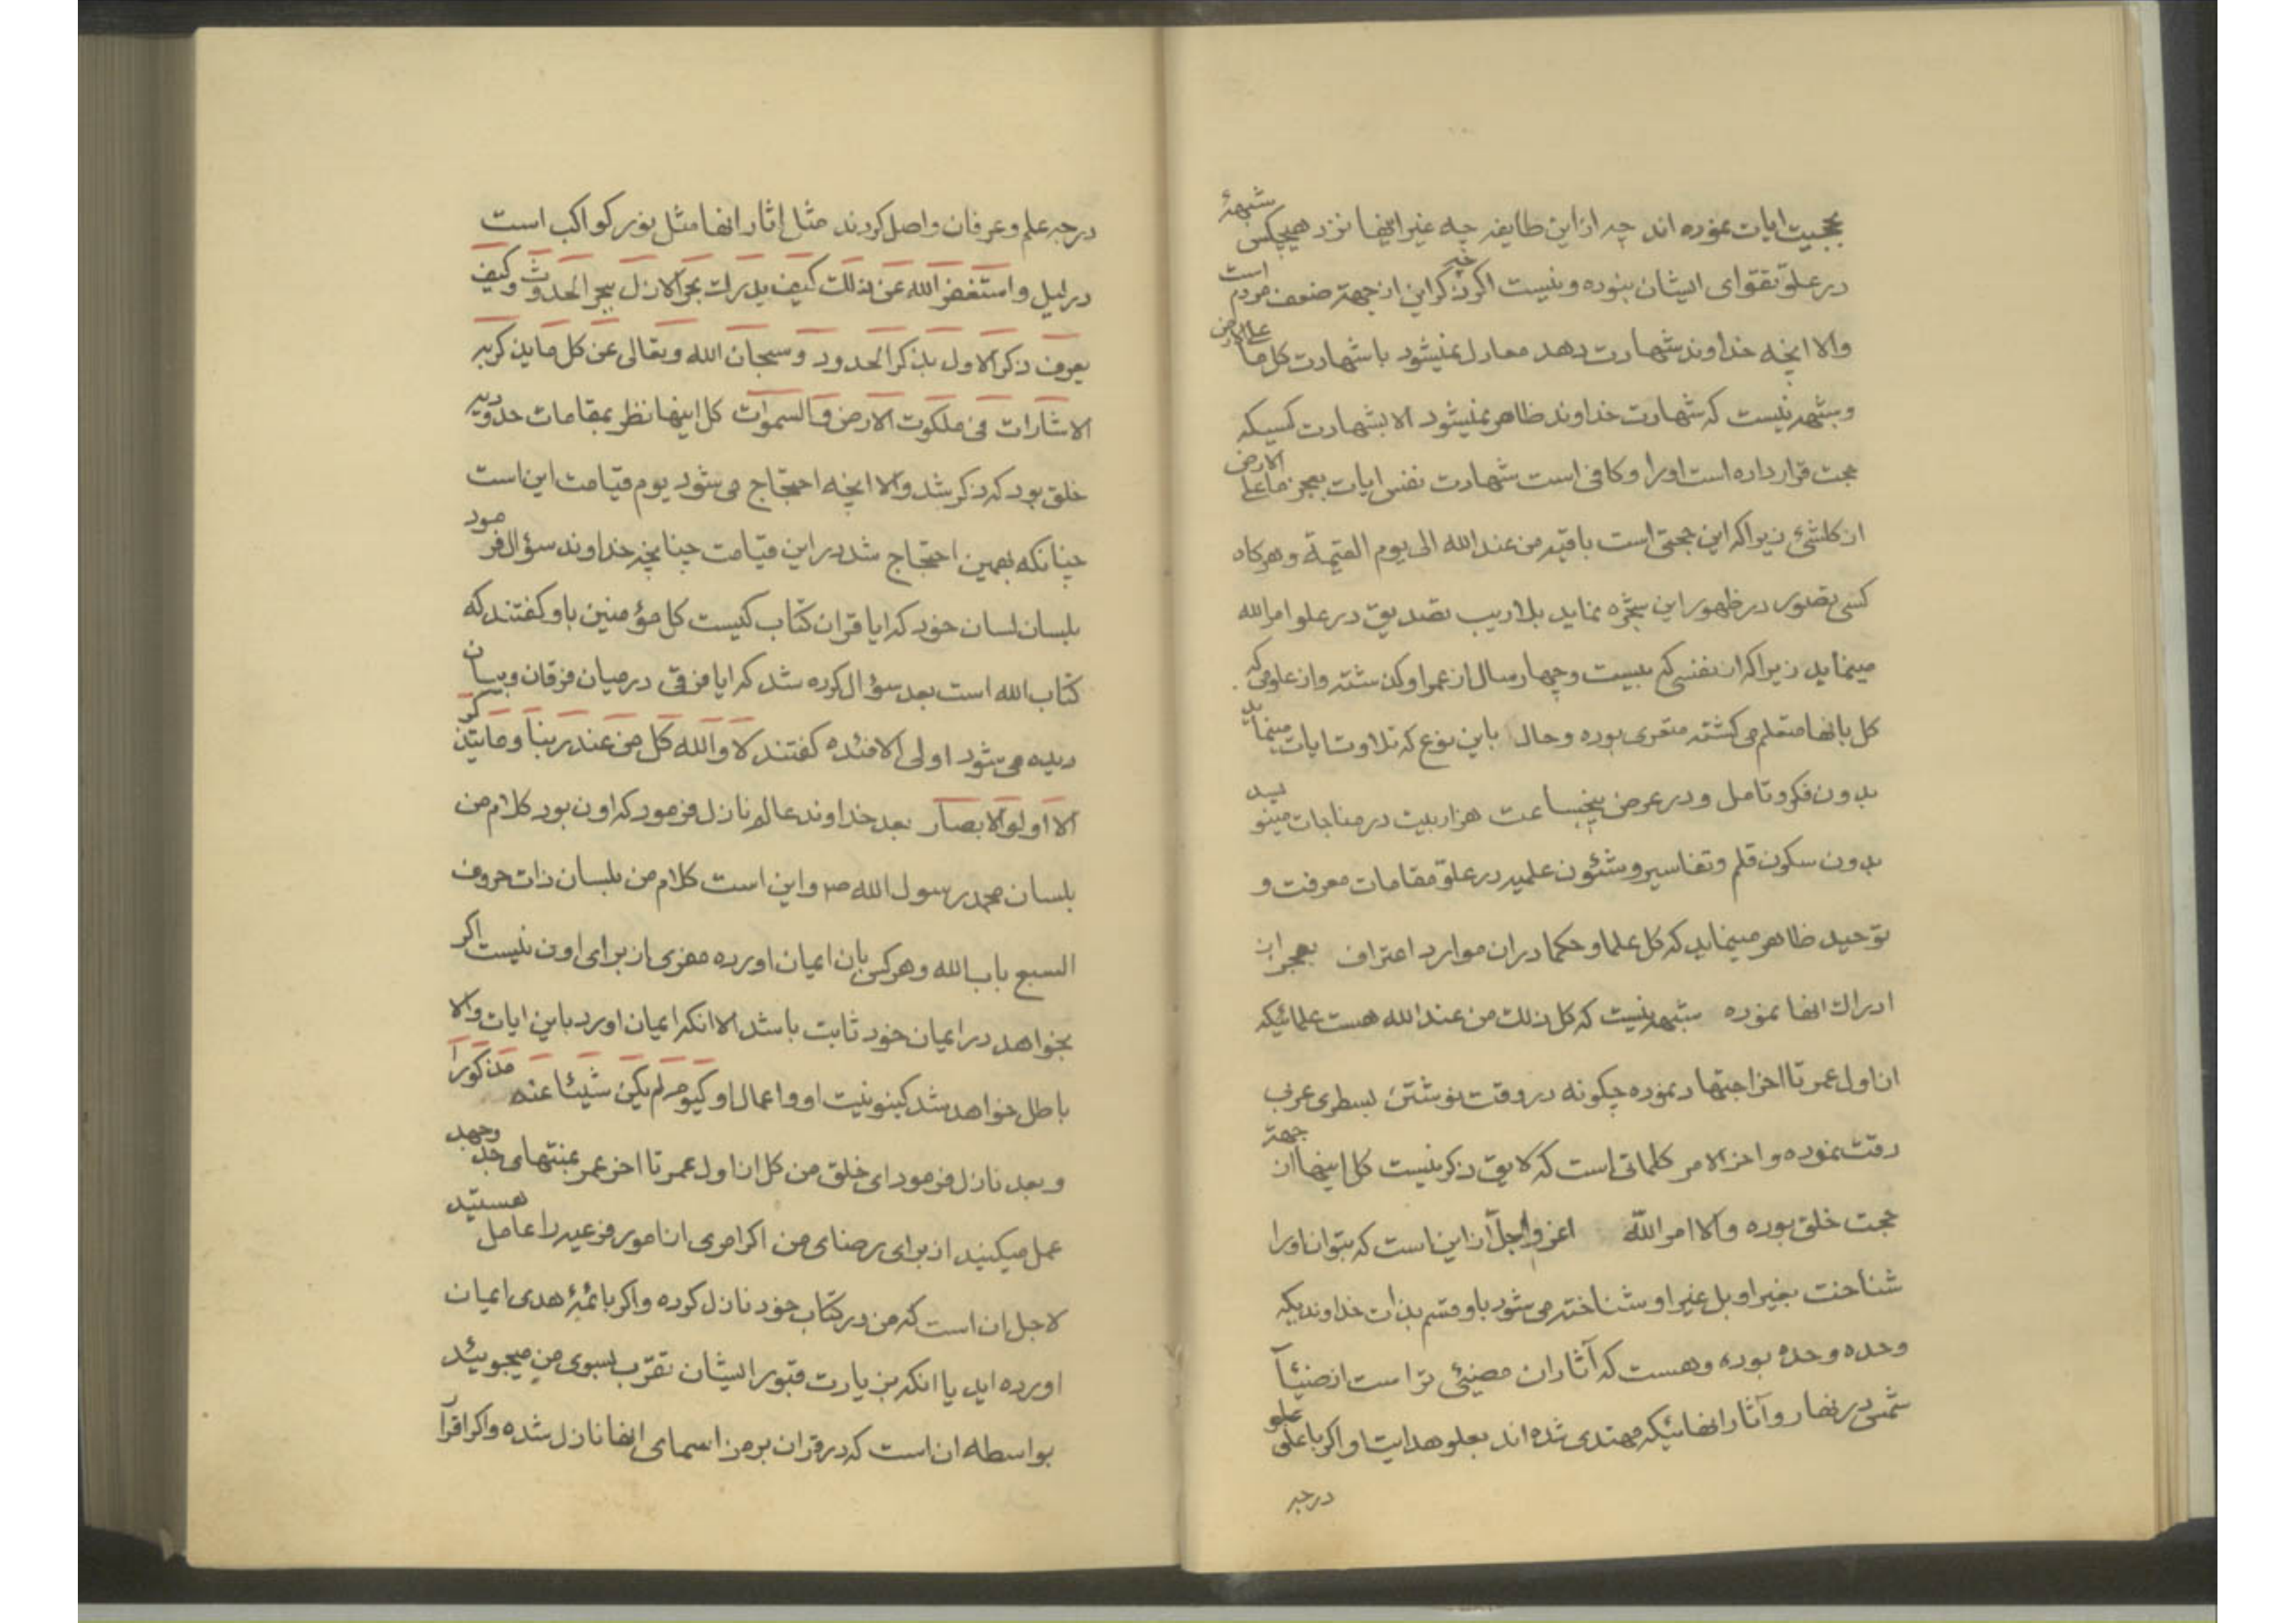 بحجیت ایات نموده اند چه از این طایفه چه غیر اینها نزد هیچکس شبههٔ
در علو تقوای ایشان نبوده و نیست اگر ذکر این از جهة ضعف مردم است
والا انچه خداوند شهادت دهد معادل نمیشود با شهادت کل ما علی الارض
و شبهه نیست که شهادت خداوند ظاهر نمیشود الا بشهادت کسیکه
حجت قرار داده است اورا و کافی است شهادت نفس ایات بعجز ما علی الارض
از کلشئ زیرا که این حجتی است باقیه من عند الله الی یوم القیمة و هر گاه
کسی تصور در ظهور این شجره نماید بلا ریب تصدیق در علو امر الله
مینماید زیرا که از نفسی که بیست و چهار سال از عمر او گذشته و از علومی که
کل بانها متعلم می گشته متعری بوده و حال باین نوع که تلاوت ایات مینماید
بدون فکر و تامل و در عرض پنجساعت هزار بیت در مناجات مینویسد
بدون سکون قلم و تفاسیر و شئون علمیه در علو مقامات معرفت و
توحید ظاهر مینماید که کل علما و حکما در ان موارد اعتراف بعجز از
ادراك انها نموده شبهه نیست که کل ذلك من عند الله هست علمائیکه
از اول عمر تا اخر اجتهاد نموده چگونه در وقت نوشتن بسطری عربی
دقت نموده و اخر الامر کلماتی است که لایق ذکر نیست کل اینها از جهة
حجت خلق بوده والا امر الله اعز و اجل از این است که بتوان اورا
شناخت بغیر او بل غیر او شناخته می شود باو قسم بذات خداوندیکه
وحده وحده بوده و هست که آثار ان مضیئی تر است از ضیئآ
شمس در نهار و آثار انهائیکه مهتدی شده اند بعلو هدایت او اگر باعلی علو
درجه
درجه علم و عرفان واصل گردند مثل اثار انها مثل نور کواکب است
در لیل و استغفر الله عن ذلك کیف یدرك بحر الازل ببحر الحدوث و کیف
یعرف ذکر الاول بذکر الحدود و سبحان الله و تعالی عن کل ما یذکر به
الاشارات فی ملکوت الارض و السموات کل اینها نظر بمقامات حدودیه
خلق بود که ذکر شد والا انچه احتجاج می شود یوم قیامت این است
چنانکه بهمین احتجاج شد در این قیامت چنانچه خداوند سؤال فرمود
بلسان لسان خود که ایا قران کتاب کیست کل مؤمنین باو گفتند که
کتاب الله است بعد سؤال کرده شد که ایا فرقی در میان فرقان و بیان
دیده می شود اولی الافئده گفتند لا والله کل من عند ربنا و ما یتذکر
الا اولو الابصار بعد خداوند عالم نازل فرمود که اون بود کلام من
بلسان محمد رسول الله ص و این است کلام من بلسان ذات حروف
السبع باب الله و هر کس بان ایمان اورده مفری از برای اون نیست اگر
بخواهد در ایمان خود ثابت باشد الا انکه ایمان اورد باین ایات والا
باطل خواهد شد کینونیت او و اعمال او کیوم لم یکن شیئا عنه مذکورا
و بعد نازل فرمود ای خلق من کل از اول عمر تا اخر عمر بمنتهای جد وجهد
عمل میکنید از برای رضای من اگر امری از امور فرعیه را عامل هستید
لاجل ان است که من در کتاب خود نازل کرده و اگر بائمهٔ هدی ایمان
اورده اید یا انکه بزیارت قبور ایشان تقرّب بسوی من میجوئید
بواسطه ان است که در قران برمز اسمای انها نازل شده و اگر اقرار